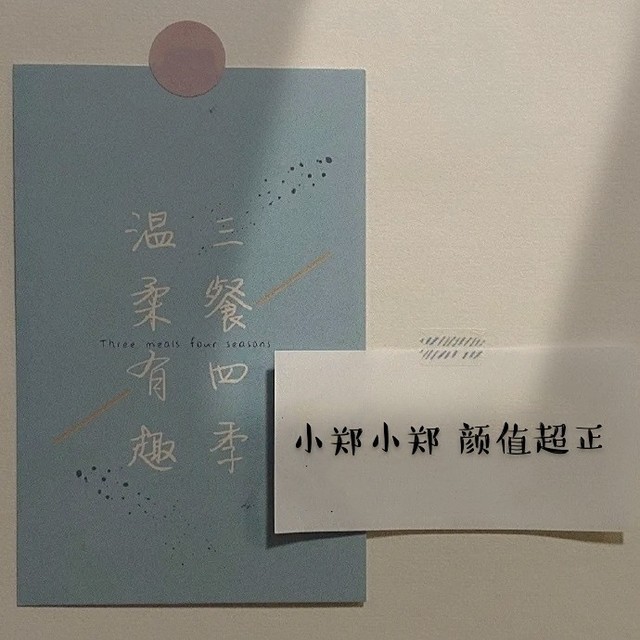 三餐四季
温柔有趣
Three meals four seasons
小郑小郑 颜值超正